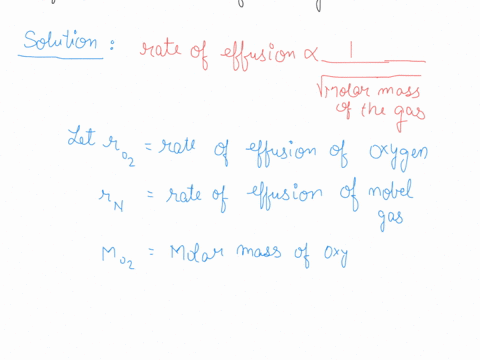 Solution : rate of effusion ∝ 1
√Molar mass
of the gas
Let r_O2 = rate of effusion of oxygen
r_N = rate of effusion of nobel
gas
M_O2 = Molar mass of oxy